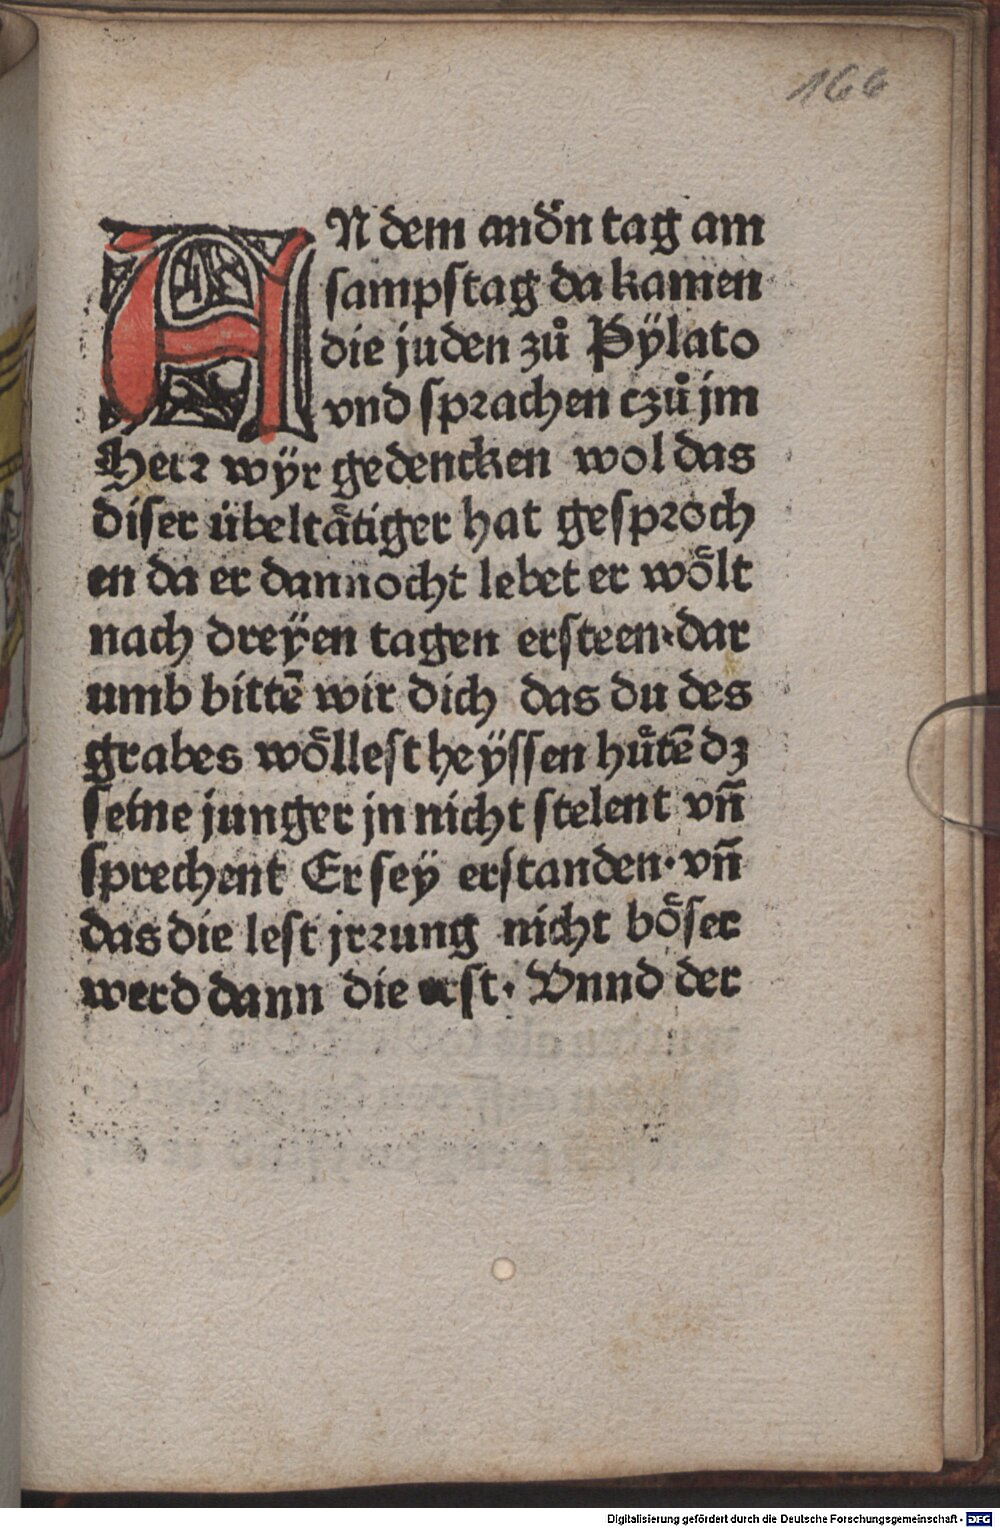 166
AN dem andn̄ tag am
sampstag da kamen
die juden zů Pÿlato
vnd sprachen czů jm
Herr wÿr gedencken wol das
diser übeltåtiger hat gesproch
en da er dannocht lebet er wȯ̈lt
nach dreÿen tagen ersteen·dar
umb bittē wir dich das du des
grabes wöllest heÿssen hůtē dz
seine junger jn nicht stelent vn̄
sprechent Er sey erstanden·vn̄
das die lest jrrung nicht böser
werd dann die erst· Vnnd der
Digitalisierung gefördert durch die Deutsche Forschungsgemeinschaft - DFG